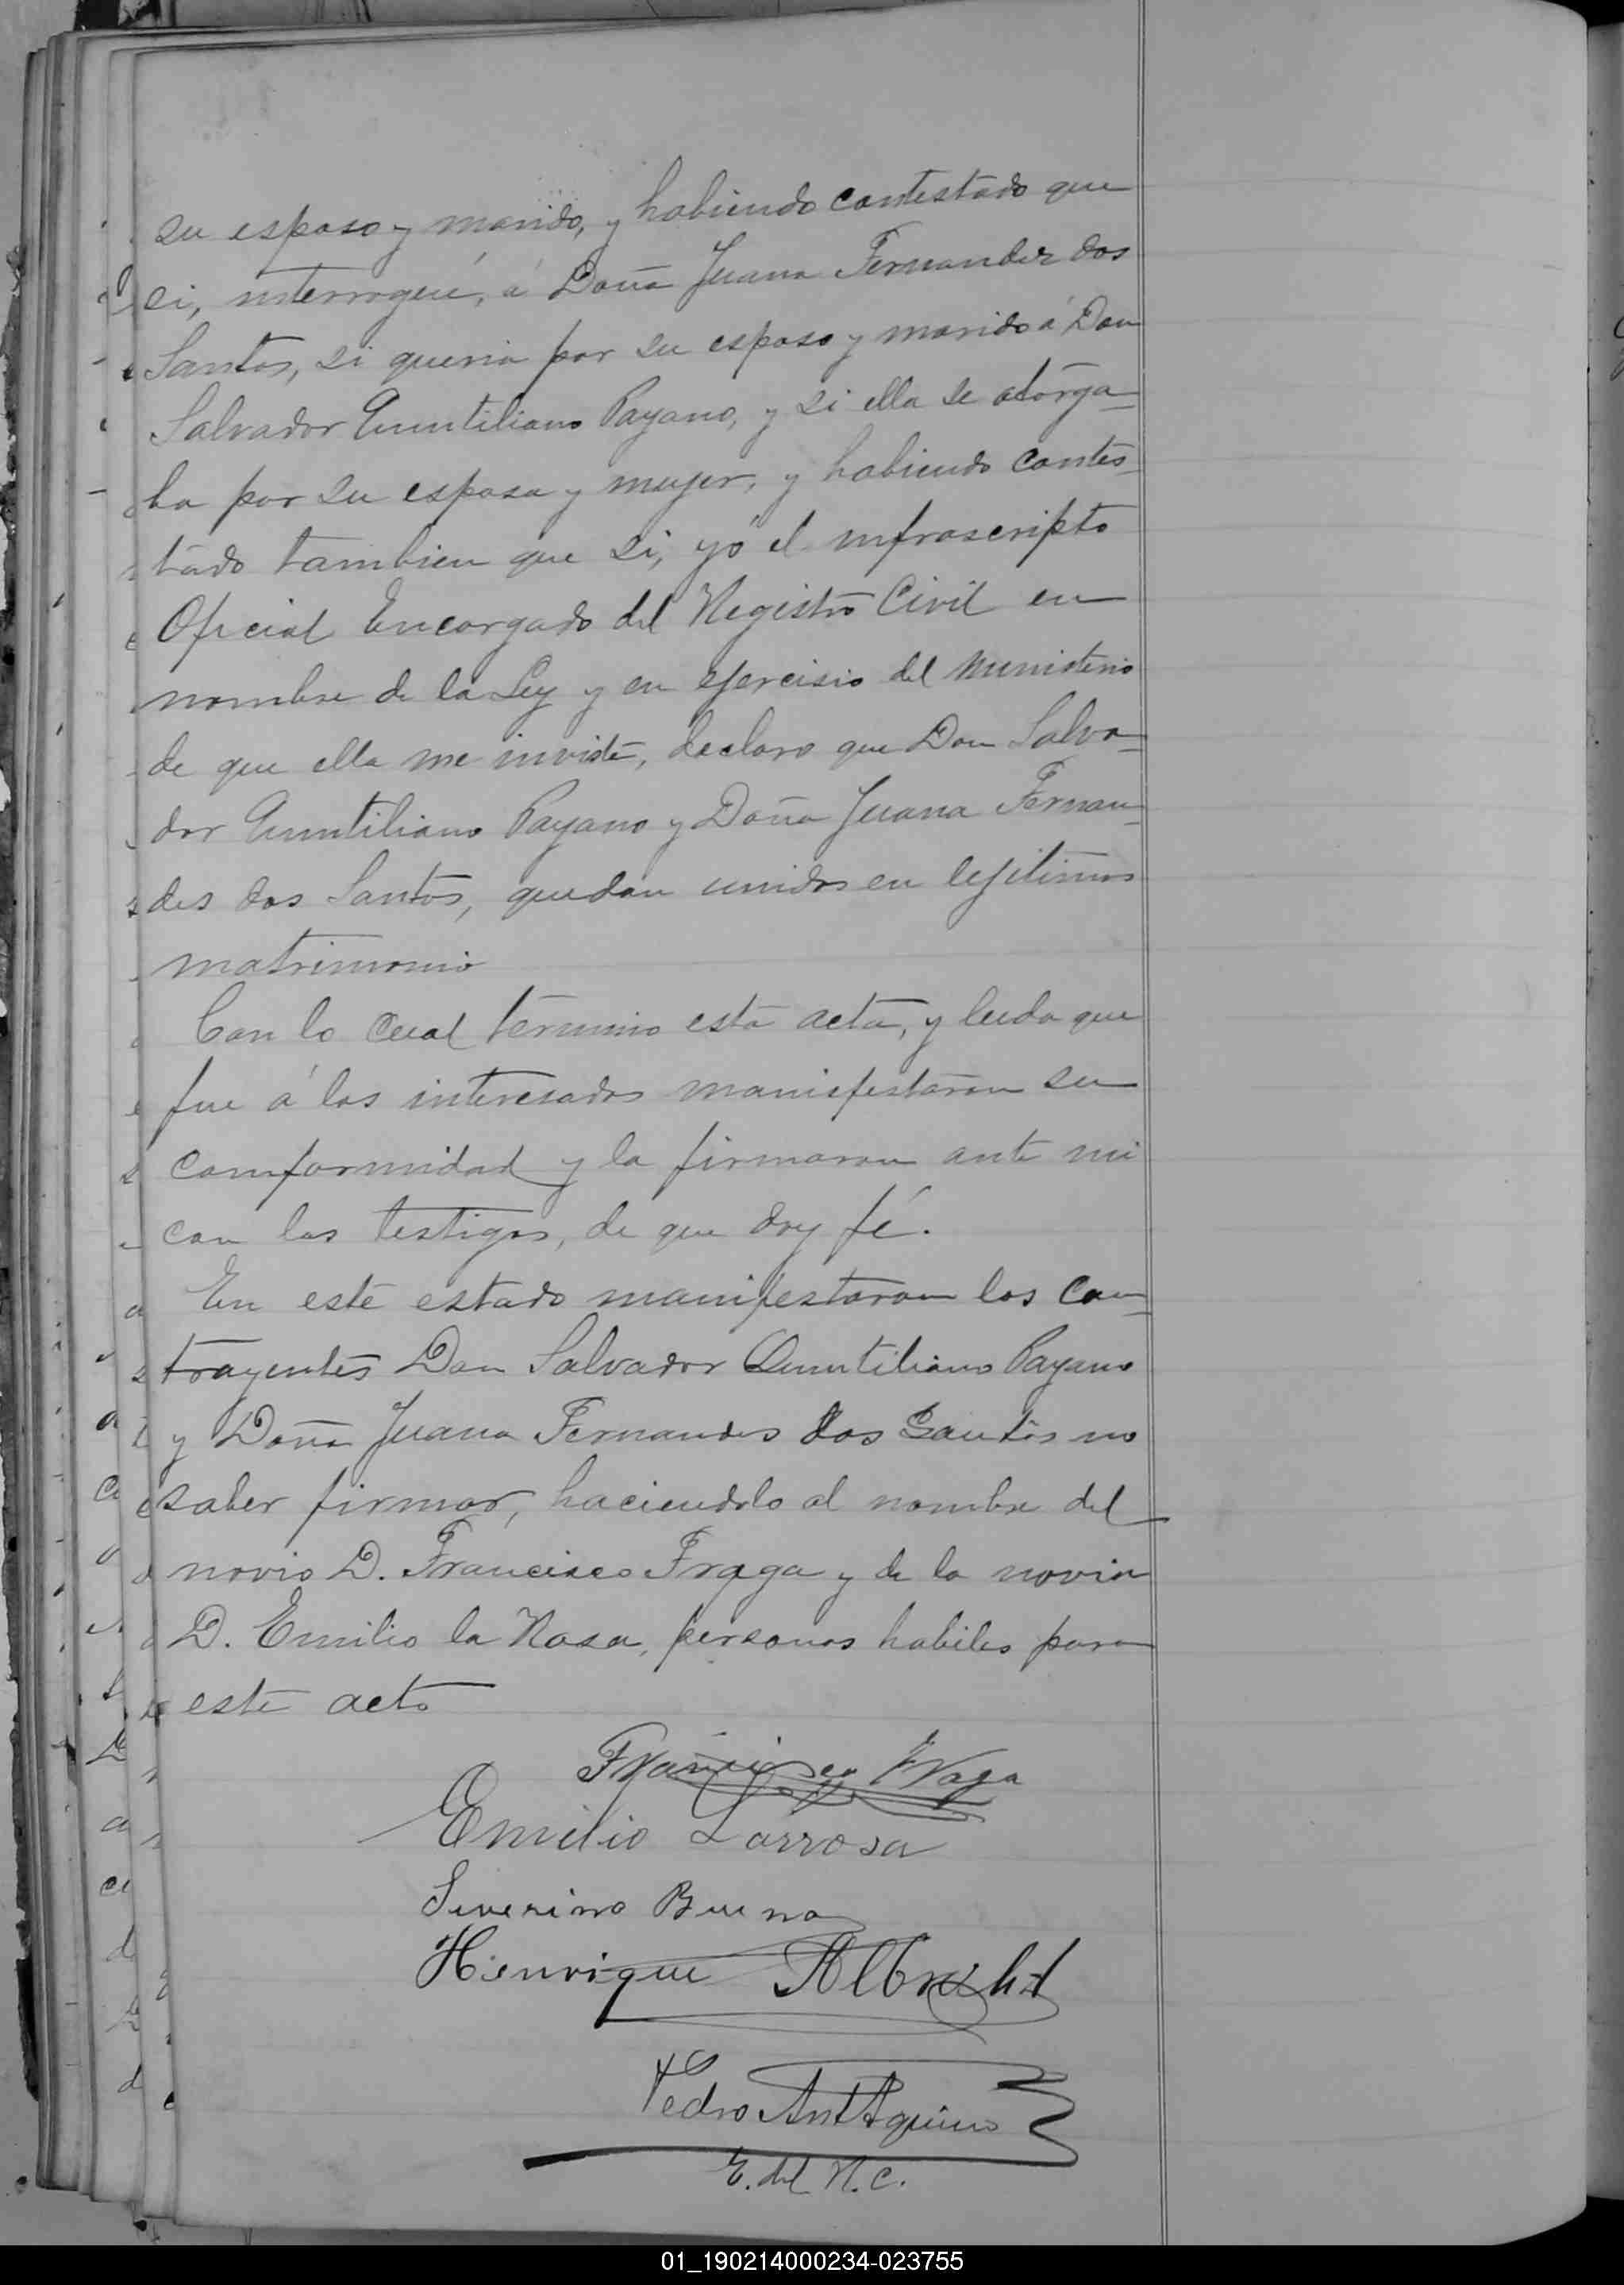 su esposo y marido, y habiendo contestado que
si, interrogué, á Doña Juana Fernandez dos
Santos, si queria por su esposo y marido á Don
Salvador Quintiliano Payano, y si ella se otorga-
ba por su esposa y mujer, y habiendo contes-
tado tambien que si, yó el infrascripto
Oficial Encargado del Registro Civil en
nombre de la Ley y en ejercisio del ministerio
de que ella me inviste, declaro que Don Salva-
dor Quintiliano Payano y Doña Juana Fernan-
des dos Santos, quedan unidos en lejitimo
matrimonio
Con lo cual termino esta acta, y leida que
fue á los interesados manisfestaron su
comformidad y la firmaron ante mi
con los testigos, de que doy fé.
En este estado manifestaron los con-
trayentes Don Salvador Quintiliano Payano
y Doña Juana Fernandes dos Santos no
saber firmar, haciendolo al nombre del
novio D. Francisco Fraga y de la novia
D. Emilio la Rosa, personas habiles para
este acto
Francisco Fraga
Emilio Larrosa
Severino Bueno
Henrique Albrecht
Pedro Ant Aquino
E. del R. C.
01_190214000234-023755